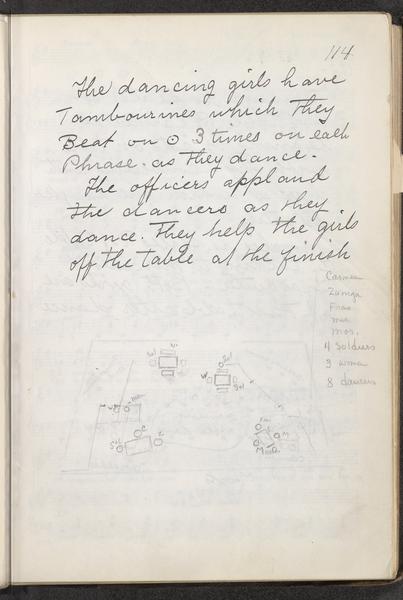 114
The dancing girls have
Tambourines which They
Beat on ⊙ 3 times on each
Phrase. as They dance.
The officers applaud
The dancers as they
dance. They help the girls
off the table at the finish
Carmen
Zuniga
Fras
mer
Mor.
4 Soldiers
3 women
8 dancers
Sol
W
Sol
Sol
C
Z
M